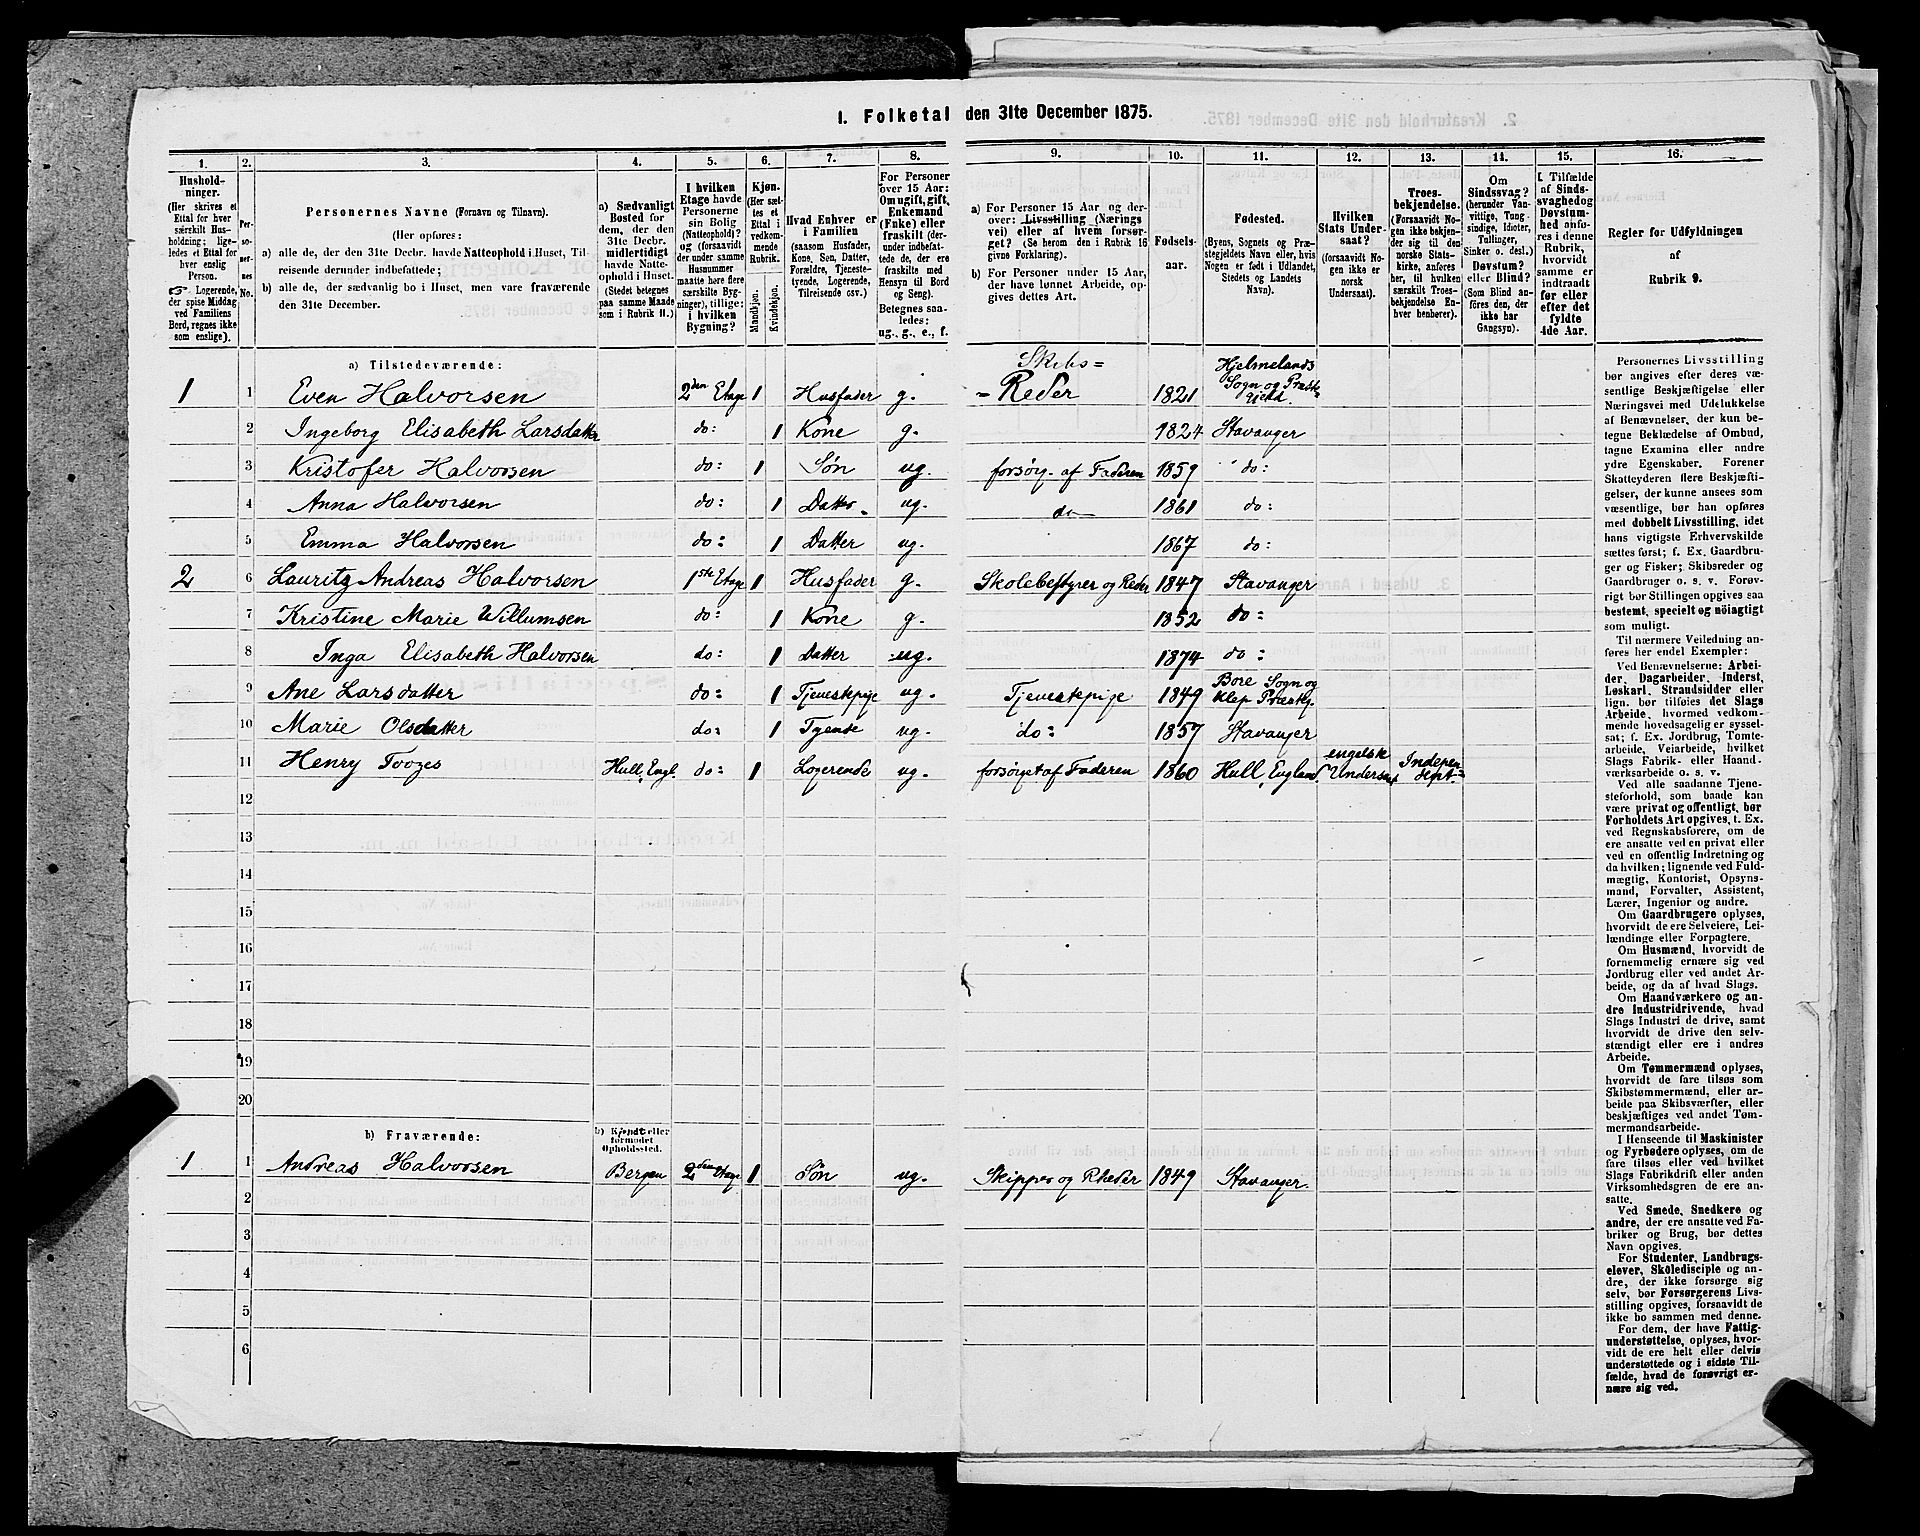 1. Folketal den 31te December 1875.
1. 2. 3. 4. 5. 6. 7. 8. 9. 10. 11. 12. 13. 14. 15. 16.
Hushold-
ninger.
(Her skrives et
Ettal for hver
særskilt Hus-
holdning; lige-
ledes et Ettal for
hver enslig
Person.
Logerende,
der spise Middag
ved Familiens
Bord, regnes ikke
som enslige).
Per-
so-
ner-
nes
No.
Personernes Navne (Fornavn og Tilnavn).
(Her opføres:
a) alle de, der den 31te Decbr. havde Natteophold i Huset, Til-
reisende derunder indbefattede;
b) alle de, der sædvanlig bo i Huset, men vare fraværende
den 31te December.
a) Sædvanligt
Bosted for
dem, der den
31te Decbr.
midlertidigt
havde Natte-
ophold i Huset.
(Stedet betegnes
paa samme Maade
som i Rubrik 11.)
I hvilken
Etage havde
Personerne
sin Bolig
(Natteophold)?
og (forsaavidt
der under samme
Husnummer
maatte høre flere
særskilte Byg-
ninger), tillige:
i hvilken
Bygning?
Kjøn.
(Her sæt-
tes et
Ettal i
vedkom-
mende
Rubrik.
Mandkjøn.
Kvindekjøn.
Hvad Enhver er
i Familien
(saasom Husfader,
Kone, Søn, Datter,
Forældre, Tjeneste-
tyende, Logerende,
Tilreisende osv.)
For Personer
over 15 Aar:
Om ugift, gift,
Enkemand
(Enke) eller
fraskilt (der-
under indbefat-
tede de, der ere
fraskilte med
Hensyn til Bord
og Seng).
Betegnes saa-
ledes:
ug., g., e., f.
a) For Personer 15 Aar og der-
over: Livsstilling (Nærings
vei) eller af hvem forsør-
get? (Se herom den i Rubrik 16
givne Forklaring).
b) For Personer under 15 Aar,
der have lønnet Arbeide, op-
gives dettes Art.
Fødsels-
aar.
Fødested.
(Byens, Sognets og Præ-
stegjeldets Navn eller, hvis
Nogen er født i Udlandet,
Stedets og Landets
Navn).
Hvilken
Stats Under-
saat?
(forsaavidt No-
gen ikke er
norsk
Undersaat).
Troes-
bekjendelse.
(Forsaavidt No-
gen ikke bekjen-
der sig til den
norske Stats-
kirke, anføres
her, til hvilken
særskilt Troes-
bekjendelse En-
hver henhører).
Om
Sindssvag?
(herunder Van-
vittige, Tung-
sindige, Idioter,
Tullinger,
Sinker o. desl.)
Døvstum?
eller Blind?
(Som Blind an-
føres den, der
ikke har
Gangsyn).
I Tilfælde
af Sinds-
svaghed og
Døvstum-
hed anfø-
res i denne
Rubrik,
hvorvidt
samme er
indtraadt
før eller
efter det
fyldte
4de Aar.
Regler for Udfyldningen
af
Rubrik 9.
a) Tilstedeværende:
1 1 Even Halvorsen 2den Etage 1 Husfader g. Skibs=-Reder 1821 Hjelmelands Sogn og Præstegjeld.
2 Ingeborg Elisabeth Larsdatter do: 1 Kone g. 1824 Stavanger
3 Kristofer Halvorsen do: 1 Søn ug. forsørg. af Faderen 1859 do:
4 Anna Halvorsen do: 1 Datter. ug. do 1861 do:
5 Emma Halvorsen do: 1 Datter ug. 1867 do:
2 6 Lauritz Andreas Halvorsen 1ste Etage 1 Husfader g. Skolebestyrer og Reder 1847 Stavanger
7 Kristine Marie Willumsen do: 1 Kone g. 1852 do:
8 Inga Elisabeth Halvorsen do: 1 Datter ug. 1874 do:
9 Ane Larsdatter do: 1 Tjenestepige ug. Tjenestepige 1849 Bore Sogn og Klep Præstegj.
10 Marie Olsdatter do: 1 Tyende ug. do: 1857 Stavanger
11 Henry Toozes Hull, Engl. do: 1 Logerende ug. forsørget af Faderen 1860 Hull, England engelsk Undersaat Independent.
12
13
14
15
16
17
18
19
20
b) Fraværende:
b) Kjendt eller
formodet
Opholdssted.
1 1 Andreas Halvorsen Bergen 2den Etage 1 Søn ug. Skipper og Rheder 1849 Stavanger.
2
3
4
5
6
Personernes Livsstilling
bør angives efter deres væ-
sentlige Beskjæftigelse eller
Næringsvei med Udelukkelse
af Benævnelser, der kun be-
tegne Beklædelse af Ombud,
tagne Examina eller andre
ydre Egenskaber. Forener
Skatteyderen flere Beskjæfti-
gelser, der kunne ansees som
væsentlige, bør han opføres
med dobbelt Livsstilling, idet
hans vigtigste Erhvervskilde
sættes først; f. Ex. Gaardbru-
ger og Fisker; Skibsreder og
Gaardbruger o. s. v. Forøv-
rigt bør Stillingen opgives saa
bestemt, specielt og nöiagtigt
som muligt.
Til nærmere Veiledning an-
føres her endel Exempler:
Ved Benævnelserne: Arbei-
der, Dagarbeider, Inderst,
Løskarl, Strandsidder eller
lign. bør tilføies det Slags
Arbeide, hvormed vedkom-
mende hovedsagelig er syssel-
sat; f. Ex. Jordbrug, Tomte-
arbeide, Veiarbeide, hvilket
Slags Fabrik- eller Haand-
værksarbeide o. s. v.
Ved alle saadanne Tjene-
steforhold, som baade kan
være privat og offentligt, bør
Forholdets Art opgives, t. Ex.
ved Regnskabsførere, om de
ere ansatte ved en privat eller
ved en offentlig Indretning og
da hvilken; lignende ved Fuld-
mægtig, Kontorist, Opsyns-
mand, Forvalter, Assistent,
Lærer, Ingeniør og andre.
Om Gaardbrugere oplyses,
hvorvidt de ere Selveiere, Lei-
lændinge eller Forpagtere.
Om Husmænd, hvorvidt de
fornemmelig ernære sig ved
Jordbrug eller ved andet Ar-
beide, og da af hvad Slags.
Om Haandværkere og an-
dre Industridrivende, hvad
Slags Industri de drive, samt
hvorvidt de drive den selv-
stændigt eller ere i andres
Arbeide.
Om Tømmermænd oplyses,
hvorvidt de fare tilsøs som
Skibstømmermænd, eller ar-
beide paa Skibsværfter, eller
beskjæftiges ved andet Tøm-
mermandsarbeide.
I Henseende til Maskinister
og Fyrbødere oplyses, om de
fare tilsøs eller ved hvilket
Slags Fabrikdrift eller anden
Virksomhedsgren de ere an-
satte.
Ved Smede, Snedkere og
andre, der ere ansatte ved Fa-
briker og Brug, bør dettes
Navn opgives.
For Studenter, Landbrugs-
elever, Skoledisciple og an-
dre, der ikke forsørge sig
selv, bør Forsørgerens Livs-
stilling opgives, forsaavidt de
ikke bo sammen med denne.
For dem, der have Fattig-
understøttelse, oplyses, hvor-
vidt de ere helt eller delvis
understøttede og i sidste Til-
fælde, hvad de forøvrigt er-
nære sig ved.